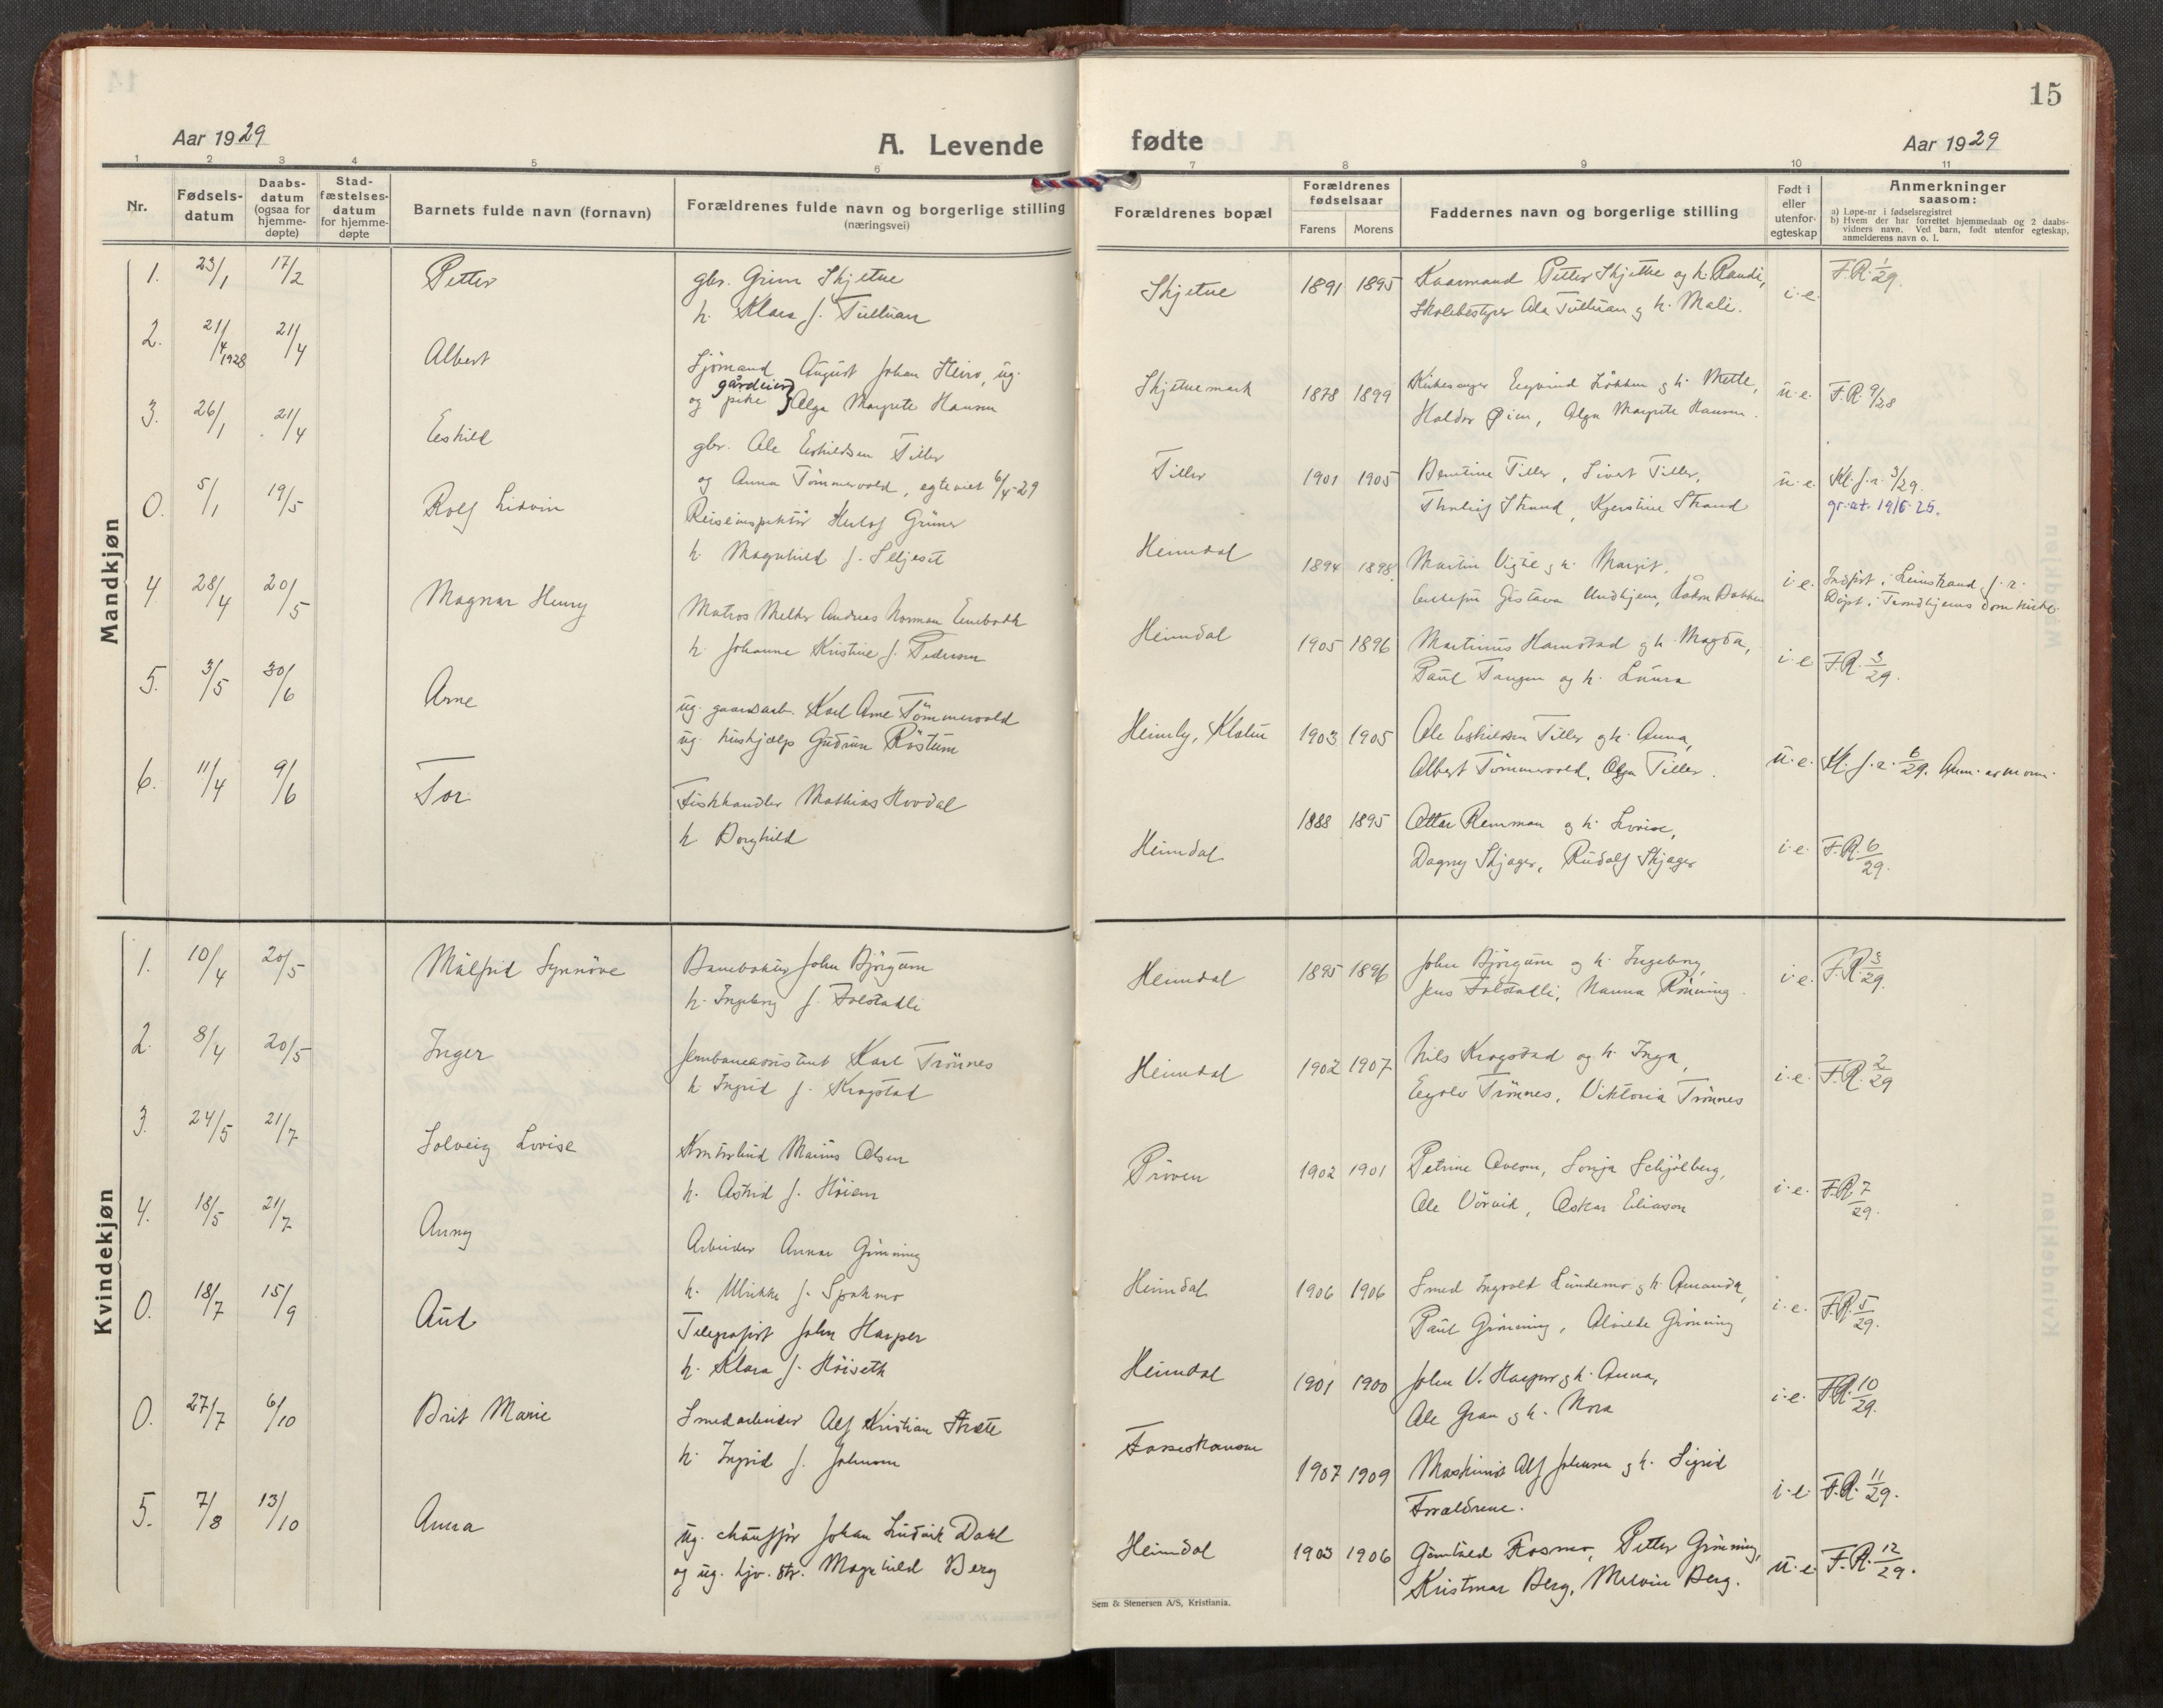 15
Aar 1929
A. Levende fødte
Aar 1929
1 2 3 4 5 6 7 8 9 10 11
Nr.
Fødsels-
datum
Daabs-
datum
(ogsaa for
hjemme-
døpte)
Stad-
fæstelses-
datum
for hjemme-
døpte
Barnets fulde navn (fornavn)
Forældrenes fulde navn og borgerlige stilling
(næringsvei)
Forældrenes bopæl
Forældrenes
fødselsaar
Farens Morens
Faddernes navn og borgerlige stilling
Født i
eller
utenfor
egteskap
Anmerkninger
saasom:
a) Løpe-nr i fødselsregistret
b) Hvem der har forrettet hjemmedaab og 2 daabs-
vidners navn. Ved barn, født utenfor egteskap,
anmelderens navn o. l.
Mandkjøn
1. 23/1 17/2 Petter
gbr. Grim Skjetne
h. Klara f. Tulluan
Skjetne 1891 1895
Kaarmand Petter Skjetne og h. Randi,
Skolebestyrer Ola Tulluan og h. Mali.
i.e. F.R. 1/29.
2. 21/4 1928 21/4 Albert
Sjømand August Johan Heiro, ug.
gårdeier
og pike Olga Margrete Hansen
Skjetnemark 1878 1899
Kirkesanger Eyvind Løkken og h. Mette,
Haldor Øien, Olga Margrete Hansen.
u.e. F.R. 9/28
3. 26/1 21/4 Eskild
gbr. Ole Eskildsen Tiller
og Anna Tømmervold, egteviet 6/4-29
Tiller 1901 1905
Berntine Tiller, Sivert Tiller,
Thorleif Strand, Kjerstine Strand
u.e. Kl. f.r. 3/29.
gr.at. 19/6-25.
0. 5/1 19/5 Rolf Lidvin
Reiseinspektør Herlof Grüner
h. Magnhild f. Seljeset
Heimdal 1894 1898
Martin Vigte og h. Margit,
Gustava Undhjem, Håkon Bakken
i.e. Indført i Leinstrand f.r.
Døpt i Trondhjems domkirke.
4. 28/4 20/5 Magnar Henry
Matros Melker Andreas Norman Einbakk
h. Johanne Kristine f. Pedersen
Heimdal 1905 1896
Martinus Hamstad og h. Magda,
Paul Tangen og h. Laura
i.e. F.R. 3/29.
5. 3/5 30/6 Arne
ug. gaardsarb. Karl Arne Tømmervold
ug. hushjælp Gudrun Røstum
Heimly, Klæbu 1903 1905
Ole Eskildsen Tiller og h. Anna,
Albert Tømmervold, Olga Tiller.
u.e. Kl. f.r. 6/29. Anm. er moren.
6. 11/4 9/6 Tor
Fiskhandler Mathias Hovdal
h Borghild
Heimdal 1888 1895
Ottar Remman og h. Lovise,
Dagny Skjager, Rudolf Skjager
i.e. F.R. 6/29.
Kvindekjøn
1. 10/4 20/5 Målfrid Synnøve
Banebokts John Bjørgum
h. Ingeborg f. Folstadli
Heimdal 1895 1896
John Bjørgum og h. Ingeborg,
Jens Folstadli, Nanna Rønning.
i.e. F.R. 3/29.
2. 8/4 20/5 Inger
Jernbaneassistent Karl Trønnes
h Ingrid f. Krogstad
Heimdal 1902 1907
Nils Krogstad og h. Inga,
Eyolv Trønnes, Viktoria Trønnes
i.e. F.R. 2/29
3. 24/5 21/7 Solveig Lovise
Kontorbud Marius Olsen
h. Astrid f. Høiem
Prøven 1902 1901
Petrine Aveson, Sonja Schjølberg,
Ole Vørvik, Oskar Eliason
i.e. F.R. 7/29.
4. 18/5 21/7 Anny
Arbeider Annar Grønning
h. Ulrikke f. Spakmo
Heimdal 1906 1906
Smed Ingvald Lundemo og h. Amanda,
Paul Grønning, Alvilde Grønning
i.e. F.R. 5/29.
0. 18/7 15/9 Aud
Telegrafist John Harper
h. Klara f. Høiseth
Heimdal 1901 1900
John V. Harper og h. Anna,
Ole Gran og h. Nora
i.e. F.R. 10/29.
0. 27/7 6/10 Brit Marie
Smedarbeider Alf Kristian Stræte
h. Ingrid f. Johnsen
Fosseskansen 1907 1909
Maskinist Alf Johnsen og h. Sigrid
Forældrene.
i.e. F.R. 11/29.
5. 7/8 13/10 Anna
ug. chauffør Johan Ludvik Dahl
og ug. tjv. str. Magnhild Berg
Heimdal 1903 1906
Gunhild Rosmo, Petter Grønning,
Kristmar Berg, Melvin Berg.
u.e. F.R. 12/29.
Sem & Stenersen A/S, Kristiania.